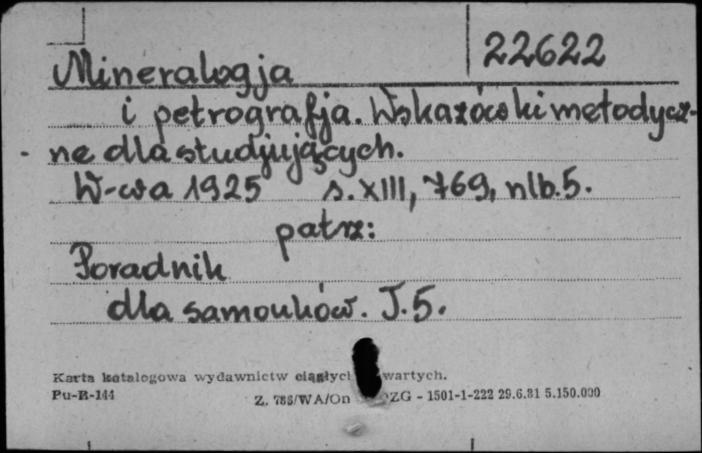 22622
Mineralogja
i petrografja. Wskazówki metodycz-
ne dla studjujących.
W-wa 1925 s. XIII, 769, nlb. 5.
patrz:
Poradnik
dla samouków. T. 5.
Karta katalogowa wydawnictw ciągłych wartych.
Pu-B-144
Z. 786/WA/On ZG - 1501-1-222 29.6.81 5.150.000